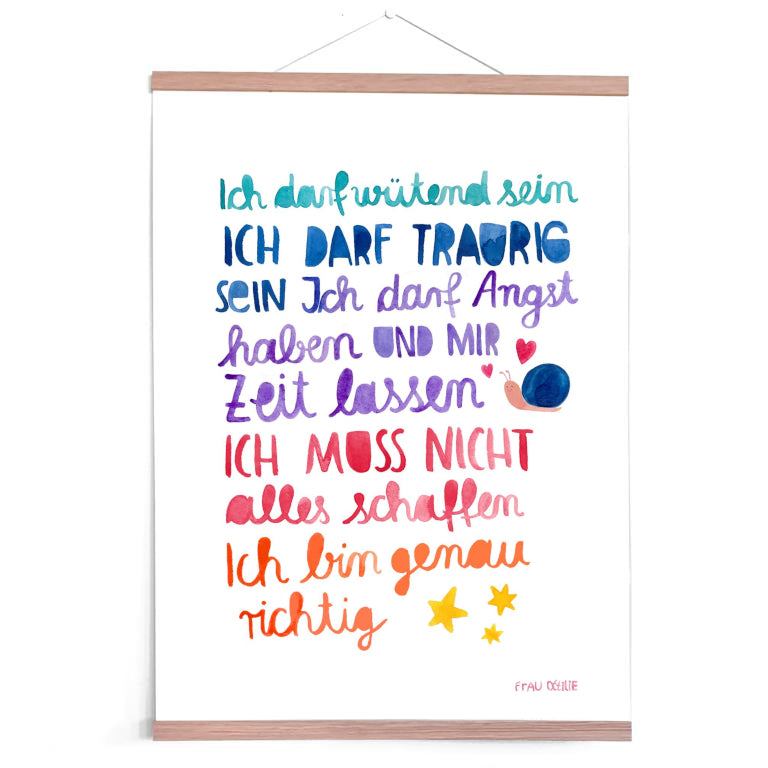 Ich darf wütend sein
ICH DARF TRAURIG
SEIN Ich darf Angst
haben UND MIR
Zeit lassen
ICH MUSS NICHT
alles schaffen
Ich bin genau
richtig
FRAU OTTILIE